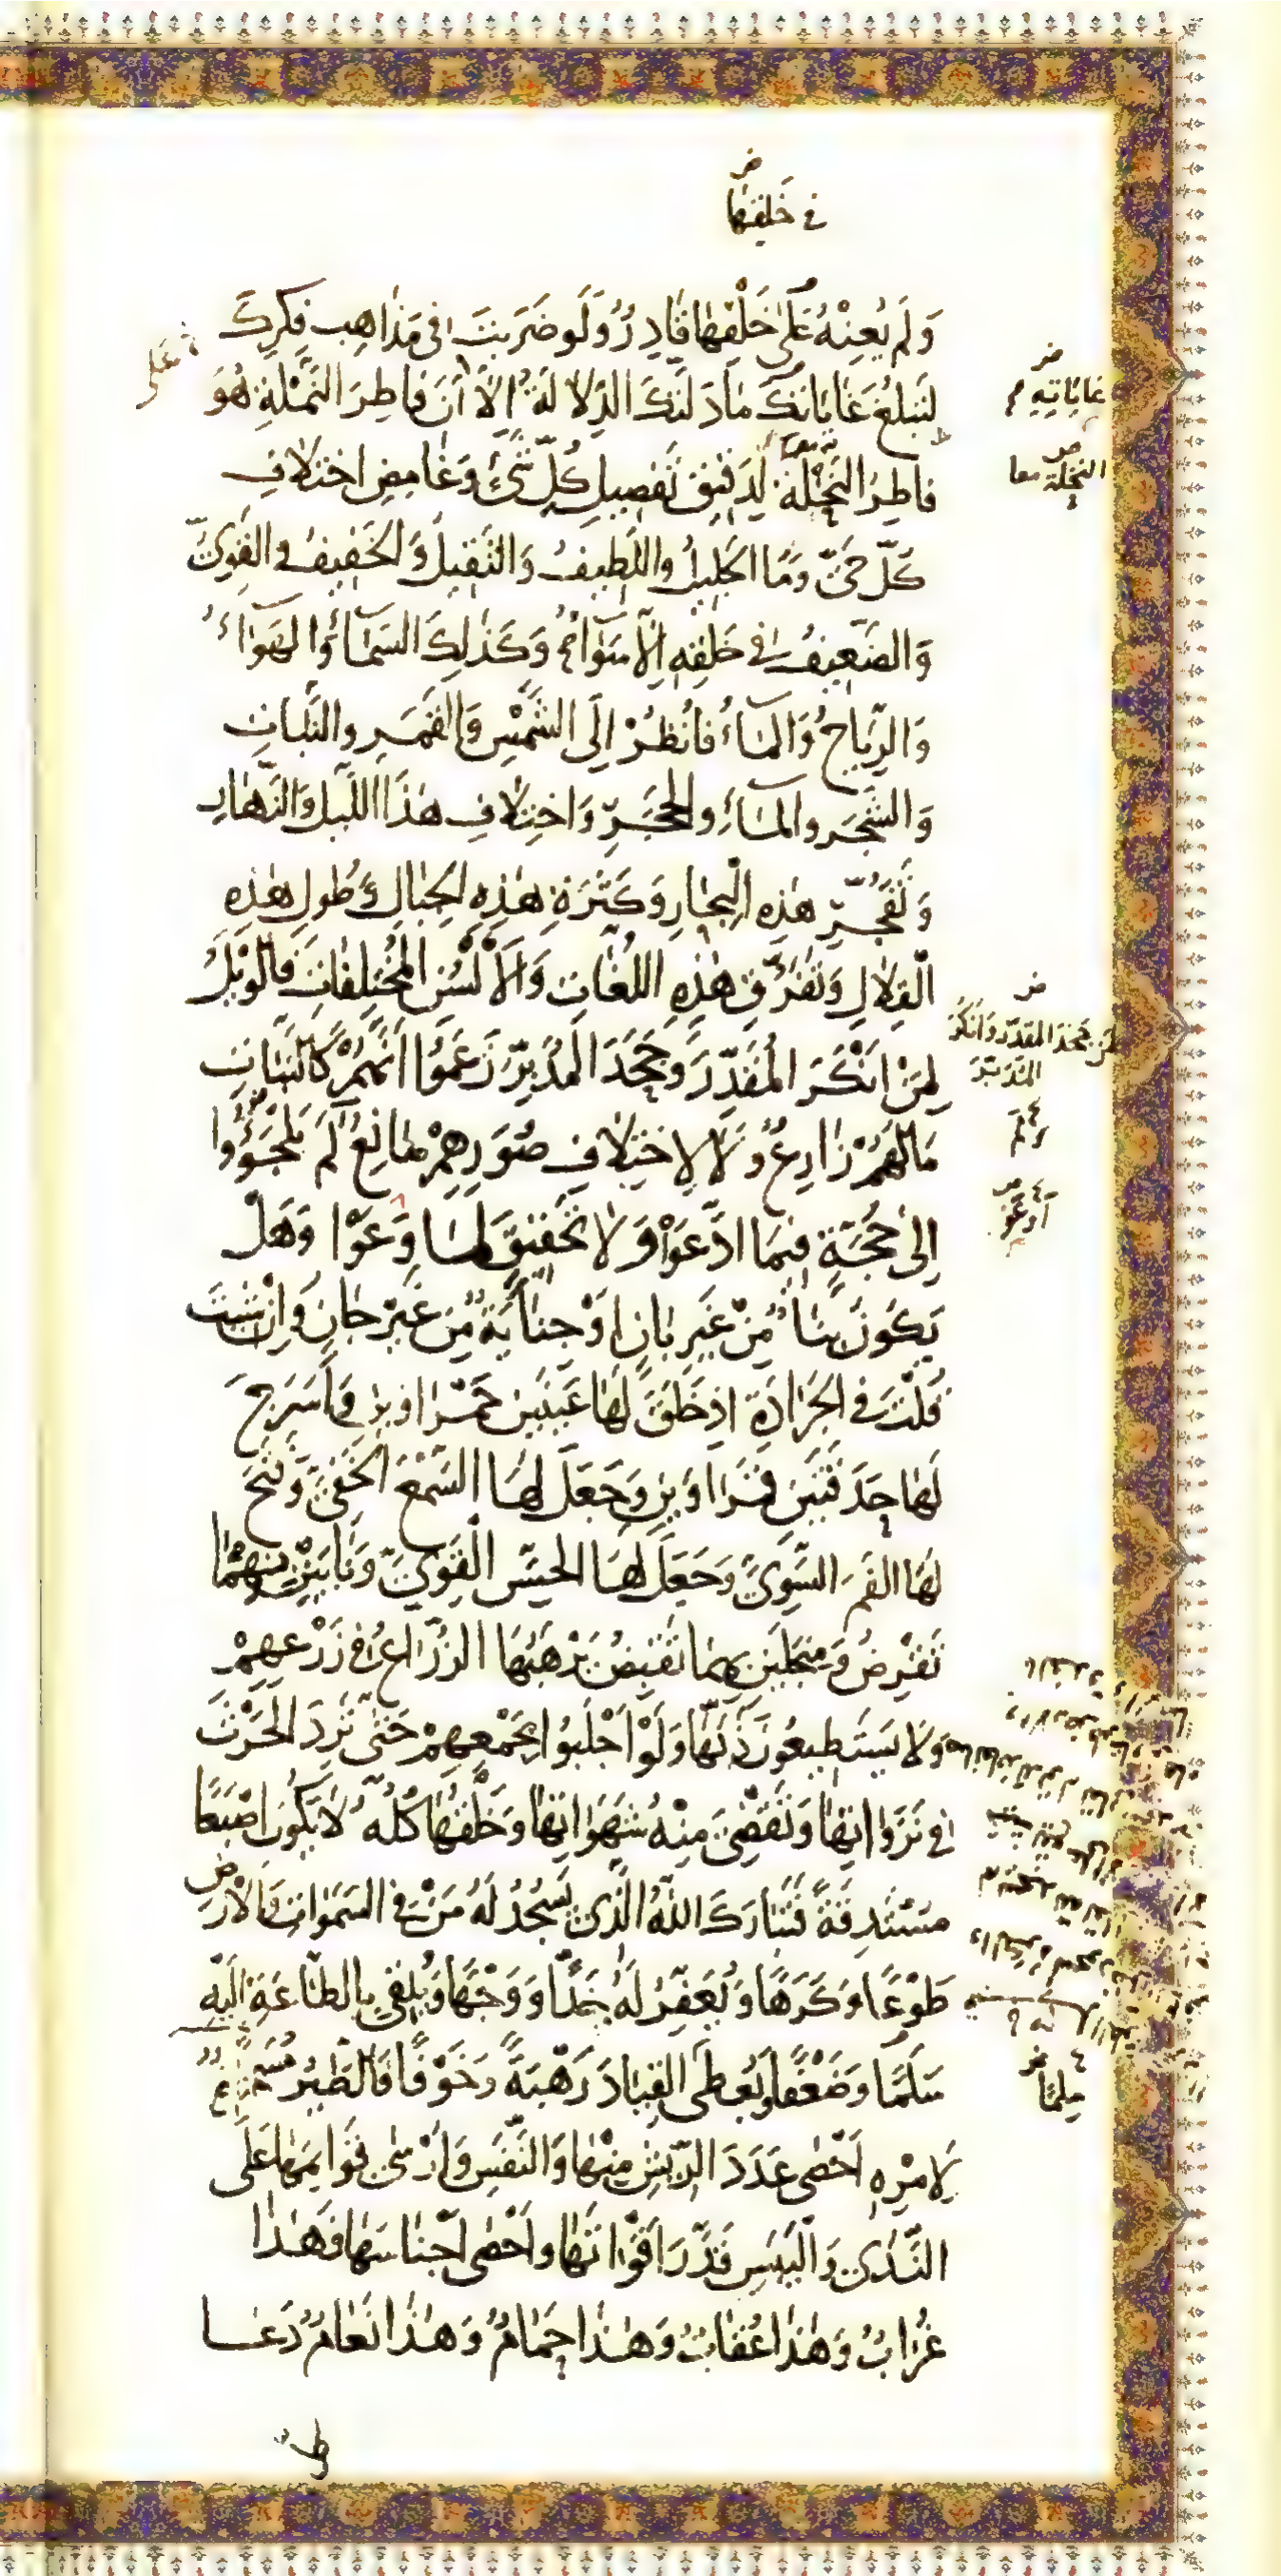 في خلقتها
وَلَم يُعِنْهُ عَلَى خَلْقِهَا قَادِرٌ وَلَو ضَرَبتَ فى مَذاهِبِ فِكرِكَ
لِتَبلُغَ غَايَاتِكَ مَا دَلَّتكَ الدِّلالَةُ إِلّا أنَّ فاطِرَ النَّمْلَةِ هُوَ
فاطِرُ النَّخلَةِ لِدَقيقِ تَفصِيلِ كُلِّ شَىْءٍ وَغَامِضِ اختِلافِ
كلّ حَىّ وَمَا الجَلِيلُ واللَّطِيفُ وَالثَّقِيلُ وَالخَفِيفُ والقَوِىُّ
وَالضَّعِيفُ فى خَلقِهِ إِلّا سَوَاءٌ وَكَذلِكَ السَّمَاءُ وَالهَوَاءُ
وَالرِّيَاحُ وَالمَاءُ فَانْظُرْ إِلَى الشَّمْسِ وَالقَمَرِ والنَّبَاتِ
وَالشَّجَرِ والمَاءِ والحَجَرِ وَاختِلافِ هذَا اللَّيلِ وَالنَّهَارِ
وَتَفَجُّرِ هذِهِ البِحَارِ وَكَثرَةِ هذِهِ الجِبَالِ وَطُولِ هذِهِ
القِلالِ وَتَفَرُّقِ هذِهِ اللُّغَاتِ وَالأَلْسُنِ المُختَلِفَاتِ فَالوَيْلُ
لِمَنْ أنْكَرَ المُقَدِّرَ وَجَحَدَ المُدَبِّرَ زَعَمُوا أنَّهُمْ كَالنَّبَاتِ
مَا لَهُمْ زَارِعٌ وَلا لِاختِلافِ صُوَرِهِمْ صَانِعٌ لَم يَلجَؤُوا
إلى حُجَّةٍ فِيمَا ادَّعَوْا وَلا تَحقِيقٍ لِمَا وَعَوْا وَهَلْ
يَكُونُ بِنَاءٌ مِنْ غَيرِ بَانٍ أوْ جِنَايَةٌ مِن غَيرِ جَانٍ وَإنْ شِئتَ
قُلتَ فى الجَرَادَةِ إذ خَلَقَ لَهَا عَينَينِ حَمرَاوَينِ وَأسرَجَ
لَهَا حَدَقَتَينِ قَمرَاوَينِ وَجَعَلَ لَهَا السَّمْعَ الخَفِىَّ وَفَتَحَ
لَهَا الفَمَ السَّوِىَّ وَجَعَلَ لَهَا الحِسَّ القَوِىَّ وَنَابَيْنِ بِهِمَا
تَقرِضُ وَمِنجَلَينِ بِهِمَا تَقبِضُ يَرْهَبُهَا الزُّرَّاعُ فى زَرْعِهِمْ
وَلا يَستَطِيعُونَ ذَبَّهَا وَلَوْ أجْلَبُوا بِجَمْعِهِمْ حَتّى تَرِدَ الحَرْثَ
فى نَزَوَاتِهَا وَتَقضِىَ مِنْهُ شَهَوَاتِهَا وَخَلْقُهَا كُلُّهُ لا يَكُونُ إصْبَعًا
مُسْتَدِقَّةً فَتَبَارَكَ اللهُ الَّذِى يَسْجُدُ لَهُ مَنْ فى السَّمَوَاتِ وَالأرْضِ
طَوْعًا وَكَرْهًا وَيُعَفِّرُ لَهُ خَدًّا وَوَجْهًا وَيُلقِى بِالطَّاعَةِ إلَيْهِ
سِلْمًا وَضَعْفًا وَيُعطِى القِيَادَ رَهْبَةً وَخَوْفًا فَالطَّيرُ مُسَخَّرَةٌ
لِأمْرِهِ أحْصَى عَدَدَ الرِّيشِ مِنْهَا وَالنَّفَسِ وَأرْسَى قَوَائِمَهَا عَلَى
النَّدَى وَاليَبَسِ قَدَّرَ أقْوَاتَهَا وَأحْصَى أجْنَاسَهَا فَهذَا
غُرَابٌ وَهذَا عُقَابٌ وَهذَا حَمَامٌ وَهذَا نَعَامٌ دَعَا
على
غاياته
النحلة معا
لمن جحد المقدر وانكر
المدبر
ولم
سلما